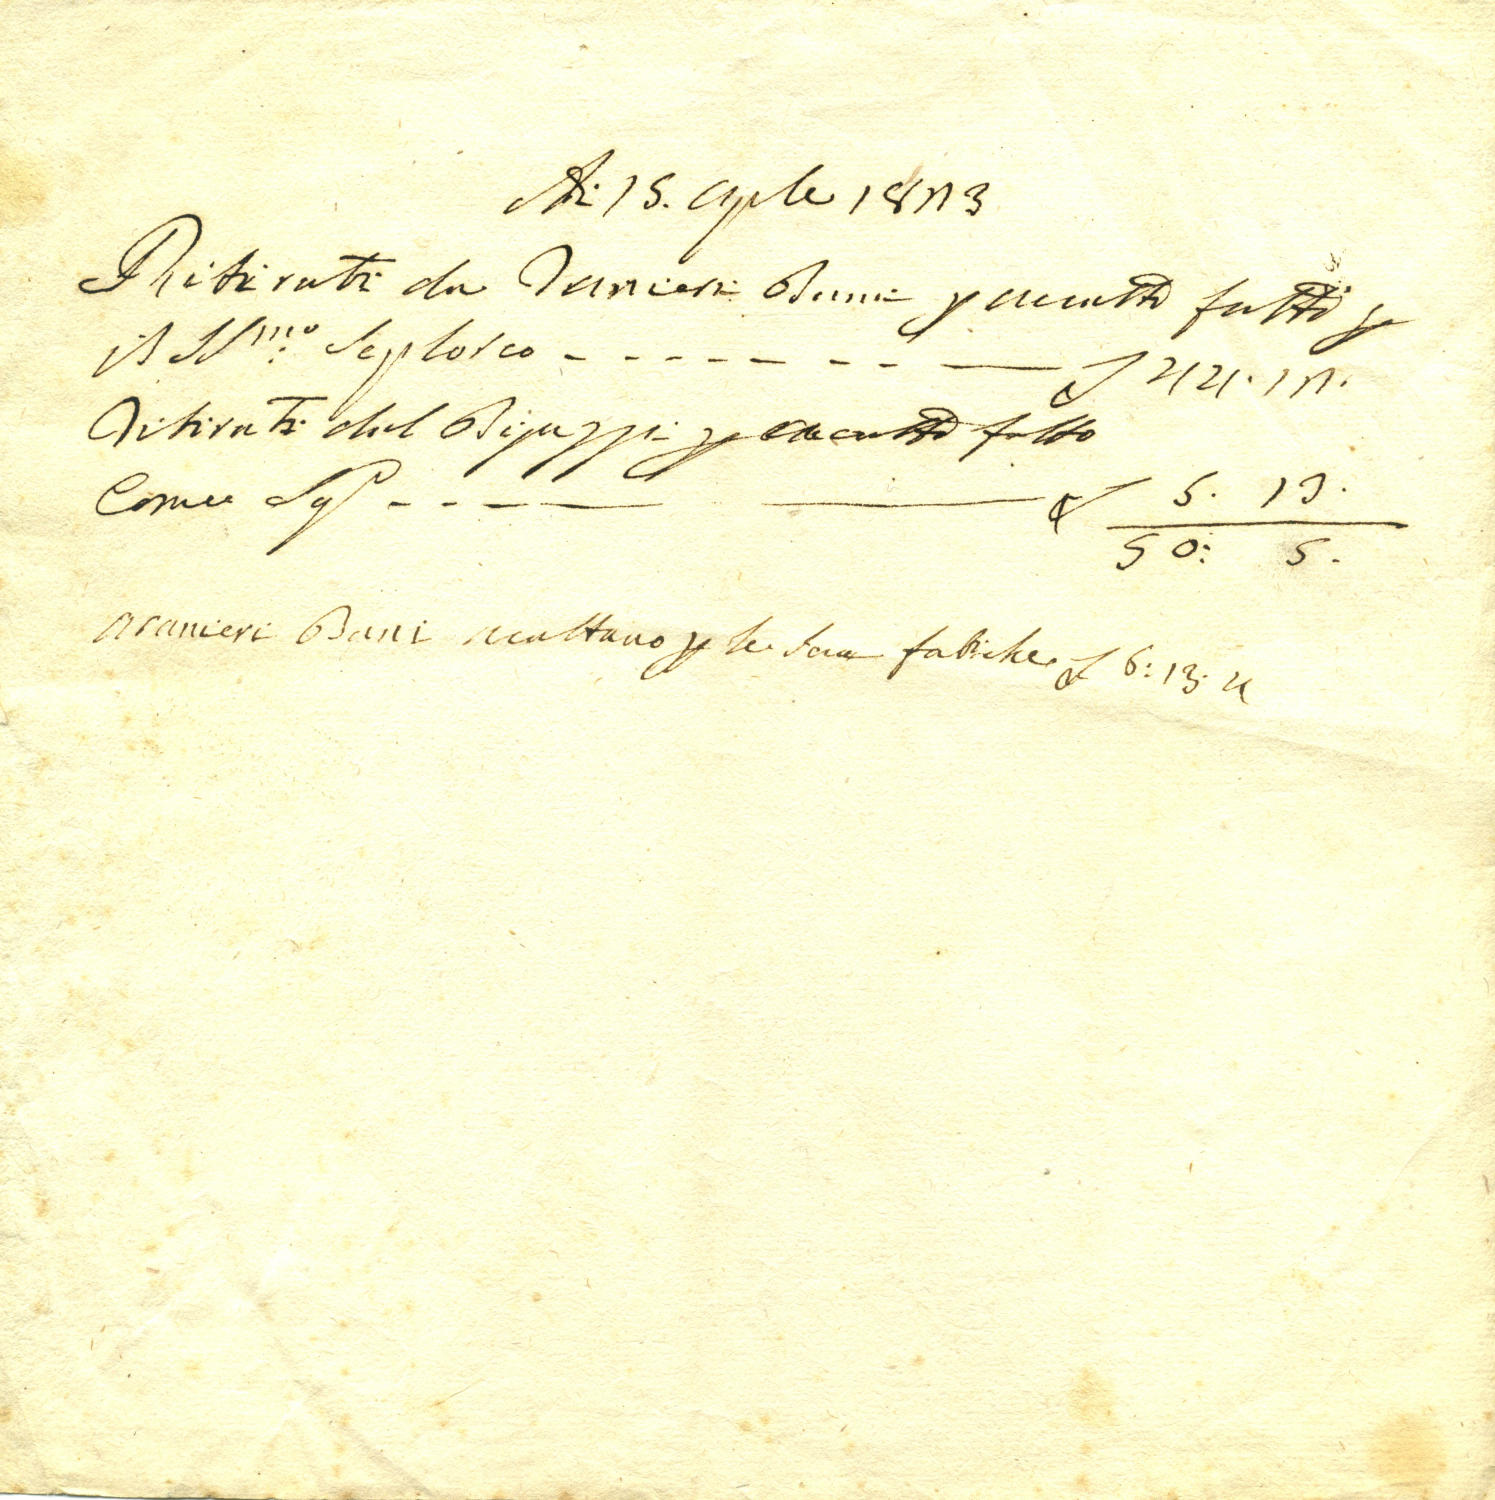 Adi 15. Aple 18113
Ritirati da Ranieri Bani p accatto fatto p
il SSmo Seplolco £ 44. 12.
Ritirati dal Bigazzi p accatto fatto
Come Sa £ 5. 13.
50: 5.
Ranieri Bani acattano p le Sua fatiche £ 6: 13: 4